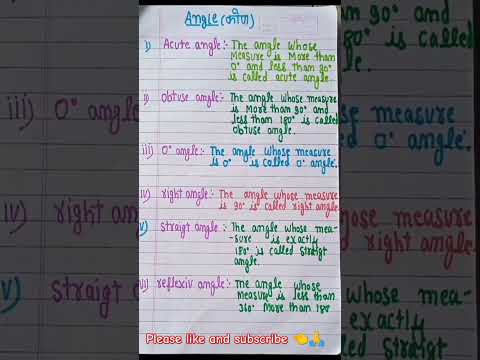 Angle (कोण)
i) Acute angle:- The angle whose
Measure is More than
0° and less than 90°
is called acute angle.
ii) obtuse angle:- The angle whose measure
is More than 90° and
less than 180° is called
obtuse angle.
iii) 0° angle:- The angle whose measure
is 0° is called 0° angle.
iv) right angle:- The angle whose measure
is 90° is called right angle
v) straigt angle:- The angle whose mea-
-sure is exactly
180° is called straigt
angle.
vi) reflexiv angle:- The angle whose
measure is less than
360° More than 180
Please like and subscribe 👈🙏